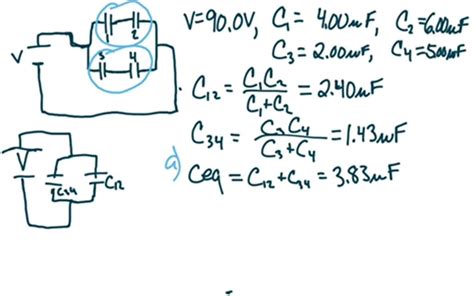 V=90.0V, C₁ = 4.00μF, C₂ = 6.00μF
C₃ = 2.00μF, C₄ = 5.00μF
V
1 2
3 4
C₁₂ = C₁C₂ / C₁+C₂ = 2.40μF
C₃₄ = C₃C₄ / C₃+C₄ = 1.43μF
a) Ceq = C₁₂ + C₃₄ = 3.83μF
V
C₃₄ C₁₂